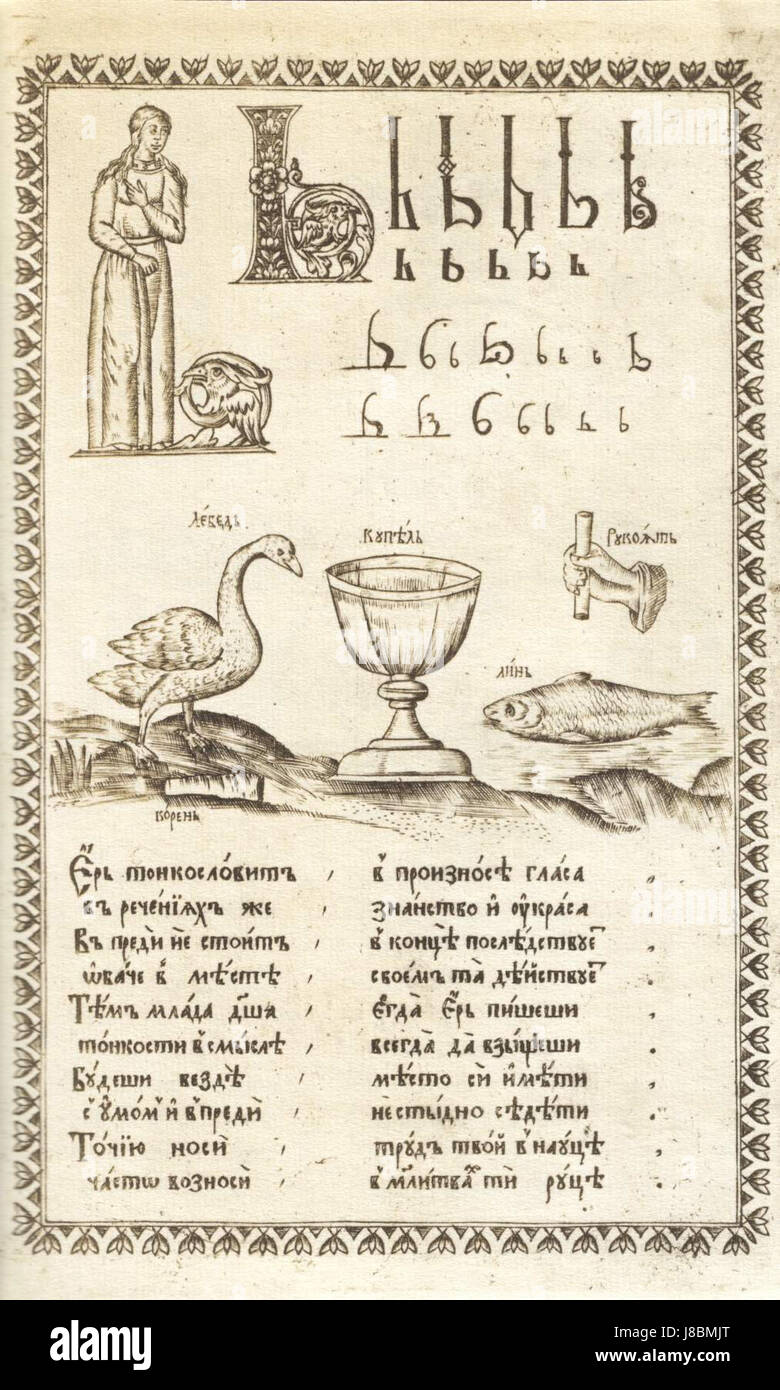 Ь Ь Ь Ь Ь Ь
ь ь ь ь ь
лéбедь
кꙋпѣ́ль
рꙋкоѧ́ть
ли́нь
корень
Е҆́рь тонкосло́витъ , в̾ произно́сѣ гла́са ,
въ рече́нїѧхъ же , зна́нство и҆ ᲂу҆кра́са .
Въ предѝ не стои́тъ , в̾ конца̀ послѣ́дствꙋеⷮ ,
ѡ҆ба́че в̾ мѣ́стѣ , свое́мъ та̀ дѣ́йствꙋеⷮ .
Тѣ́мъ мла́да дꙋша̀ , є҆гда̀ е҆́рь пи́шеши ,
то́нкости в̾ смы́слѣ , всегда̀ да взы́щеши .
Бꙋ́деши вездѣ̀ , мѣ́сто сѝ и҆мѣ́ти ,
с̾ ᲂу҆мо́мъ и҆ в̾предѝ , не сты́дно сѣдѣ́ти .
То́чїю носѝ , трꙋ́дъ тво́й в̾ наꙋ́цѣ ,
ча́стѡ возносѝ , в̾ мл҃и́твахъ тѝ рꙋ́цѣ .
alamy
Image ID: J8BMJT
www.alamy.com